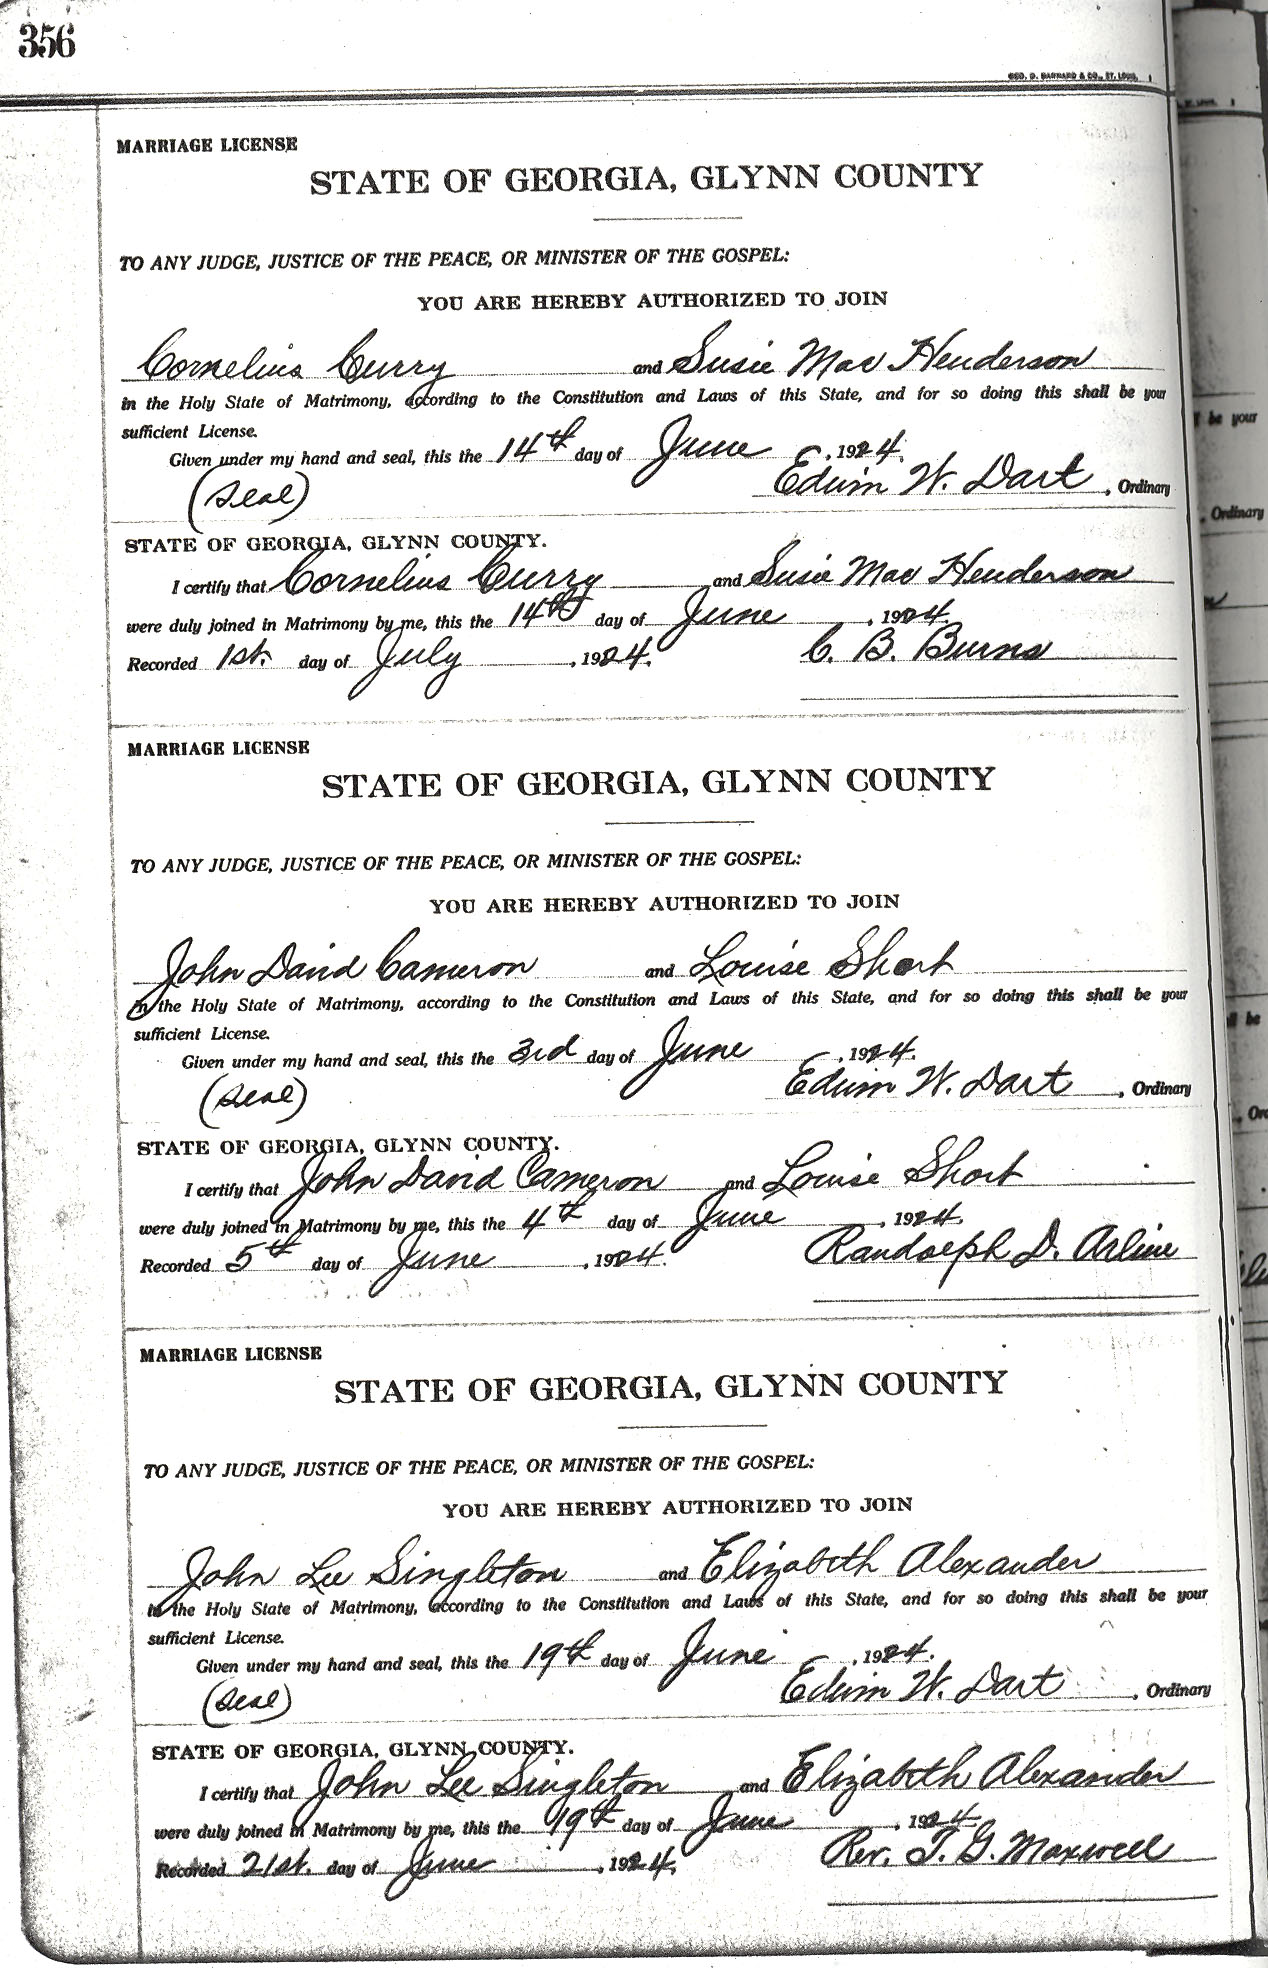 356
GEO. D. BARNARD & CO., ST. LOUIS.
MARRIAGE LICENSE
STATE OF GEORGIA, GLYNN COUNTY
TO ANY JUDGE, JUSTICE OF THE PEACE, OR MINISTER OF THE GOSPEL:
YOU ARE HEREBY AUTHORIZED TO JOIN
Cornelius Curry and Susie Mae Henderson
in the Holy State of Matrimony, according to the Constitution and Laws of this State, and for so doing this shall be your
sufficient License.
Given under my hand and seal, this the 14th day of June, 1924.
(Seal) Edwin W. Dart, Ordinary
STATE OF GEORGIA, GLYNN COUNTY.
I certify that Cornelius Curry and Susie Mae Henderson
were duly joined in Matrimony by me, this the 14th day of June, 1924.
Recorded 1st. day of July, 1924. C. B. Burns
MARRIAGE LICENSE
STATE OF GEORGIA, GLYNN COUNTY
TO ANY JUDGE, JUSTICE OF THE PEACE, OR MINISTER OF THE GOSPEL:
YOU ARE HEREBY AUTHORIZED TO JOIN
John David Cameron and Louise Short
in the Holy State of Matrimony, according to the Constitution and Laws of this State, and for so doing this shall be your
sufficient License.
Given under my hand and seal, this the 3rd day of June, 1924.
(Seal) Edwin W. Dart, Ordinary
STATE OF GEORGIA, GLYNN COUNTY.
I certify that John David Cameron and Louise Short
were duly joined in Matrimony by me, this the 4th day of June, 1924.
Recorded 5th day of June, 1924. Randolph D. Arline
MARRIAGE LICENSE
STATE OF GEORGIA, GLYNN COUNTY
TO ANY JUDGE, JUSTICE OF THE PEACE, OR MINISTER OF THE GOSPEL:
YOU ARE HEREBY AUTHORIZED TO JOIN
John Lee Singleton and Elizabeth Alexander
in the Holy State of Matrimony, according to the Constitution and Laws of this State, and for so doing this shall be your
sufficient License.
Given under my hand and seal, this the 19th day of June, 1924.
(Seal) Edwin W. Dart, Ordinary
STATE OF GEORGIA, GLYNN COUNTY.
I certify that John Lee Singleton and Elizabeth Alexander
were duly joined in Matrimony by me, this the 19th day of June, 1924.
Recorded 21st. day of June, 1924. Rev. T. G. Maxwell
be your
, Ordinary
be